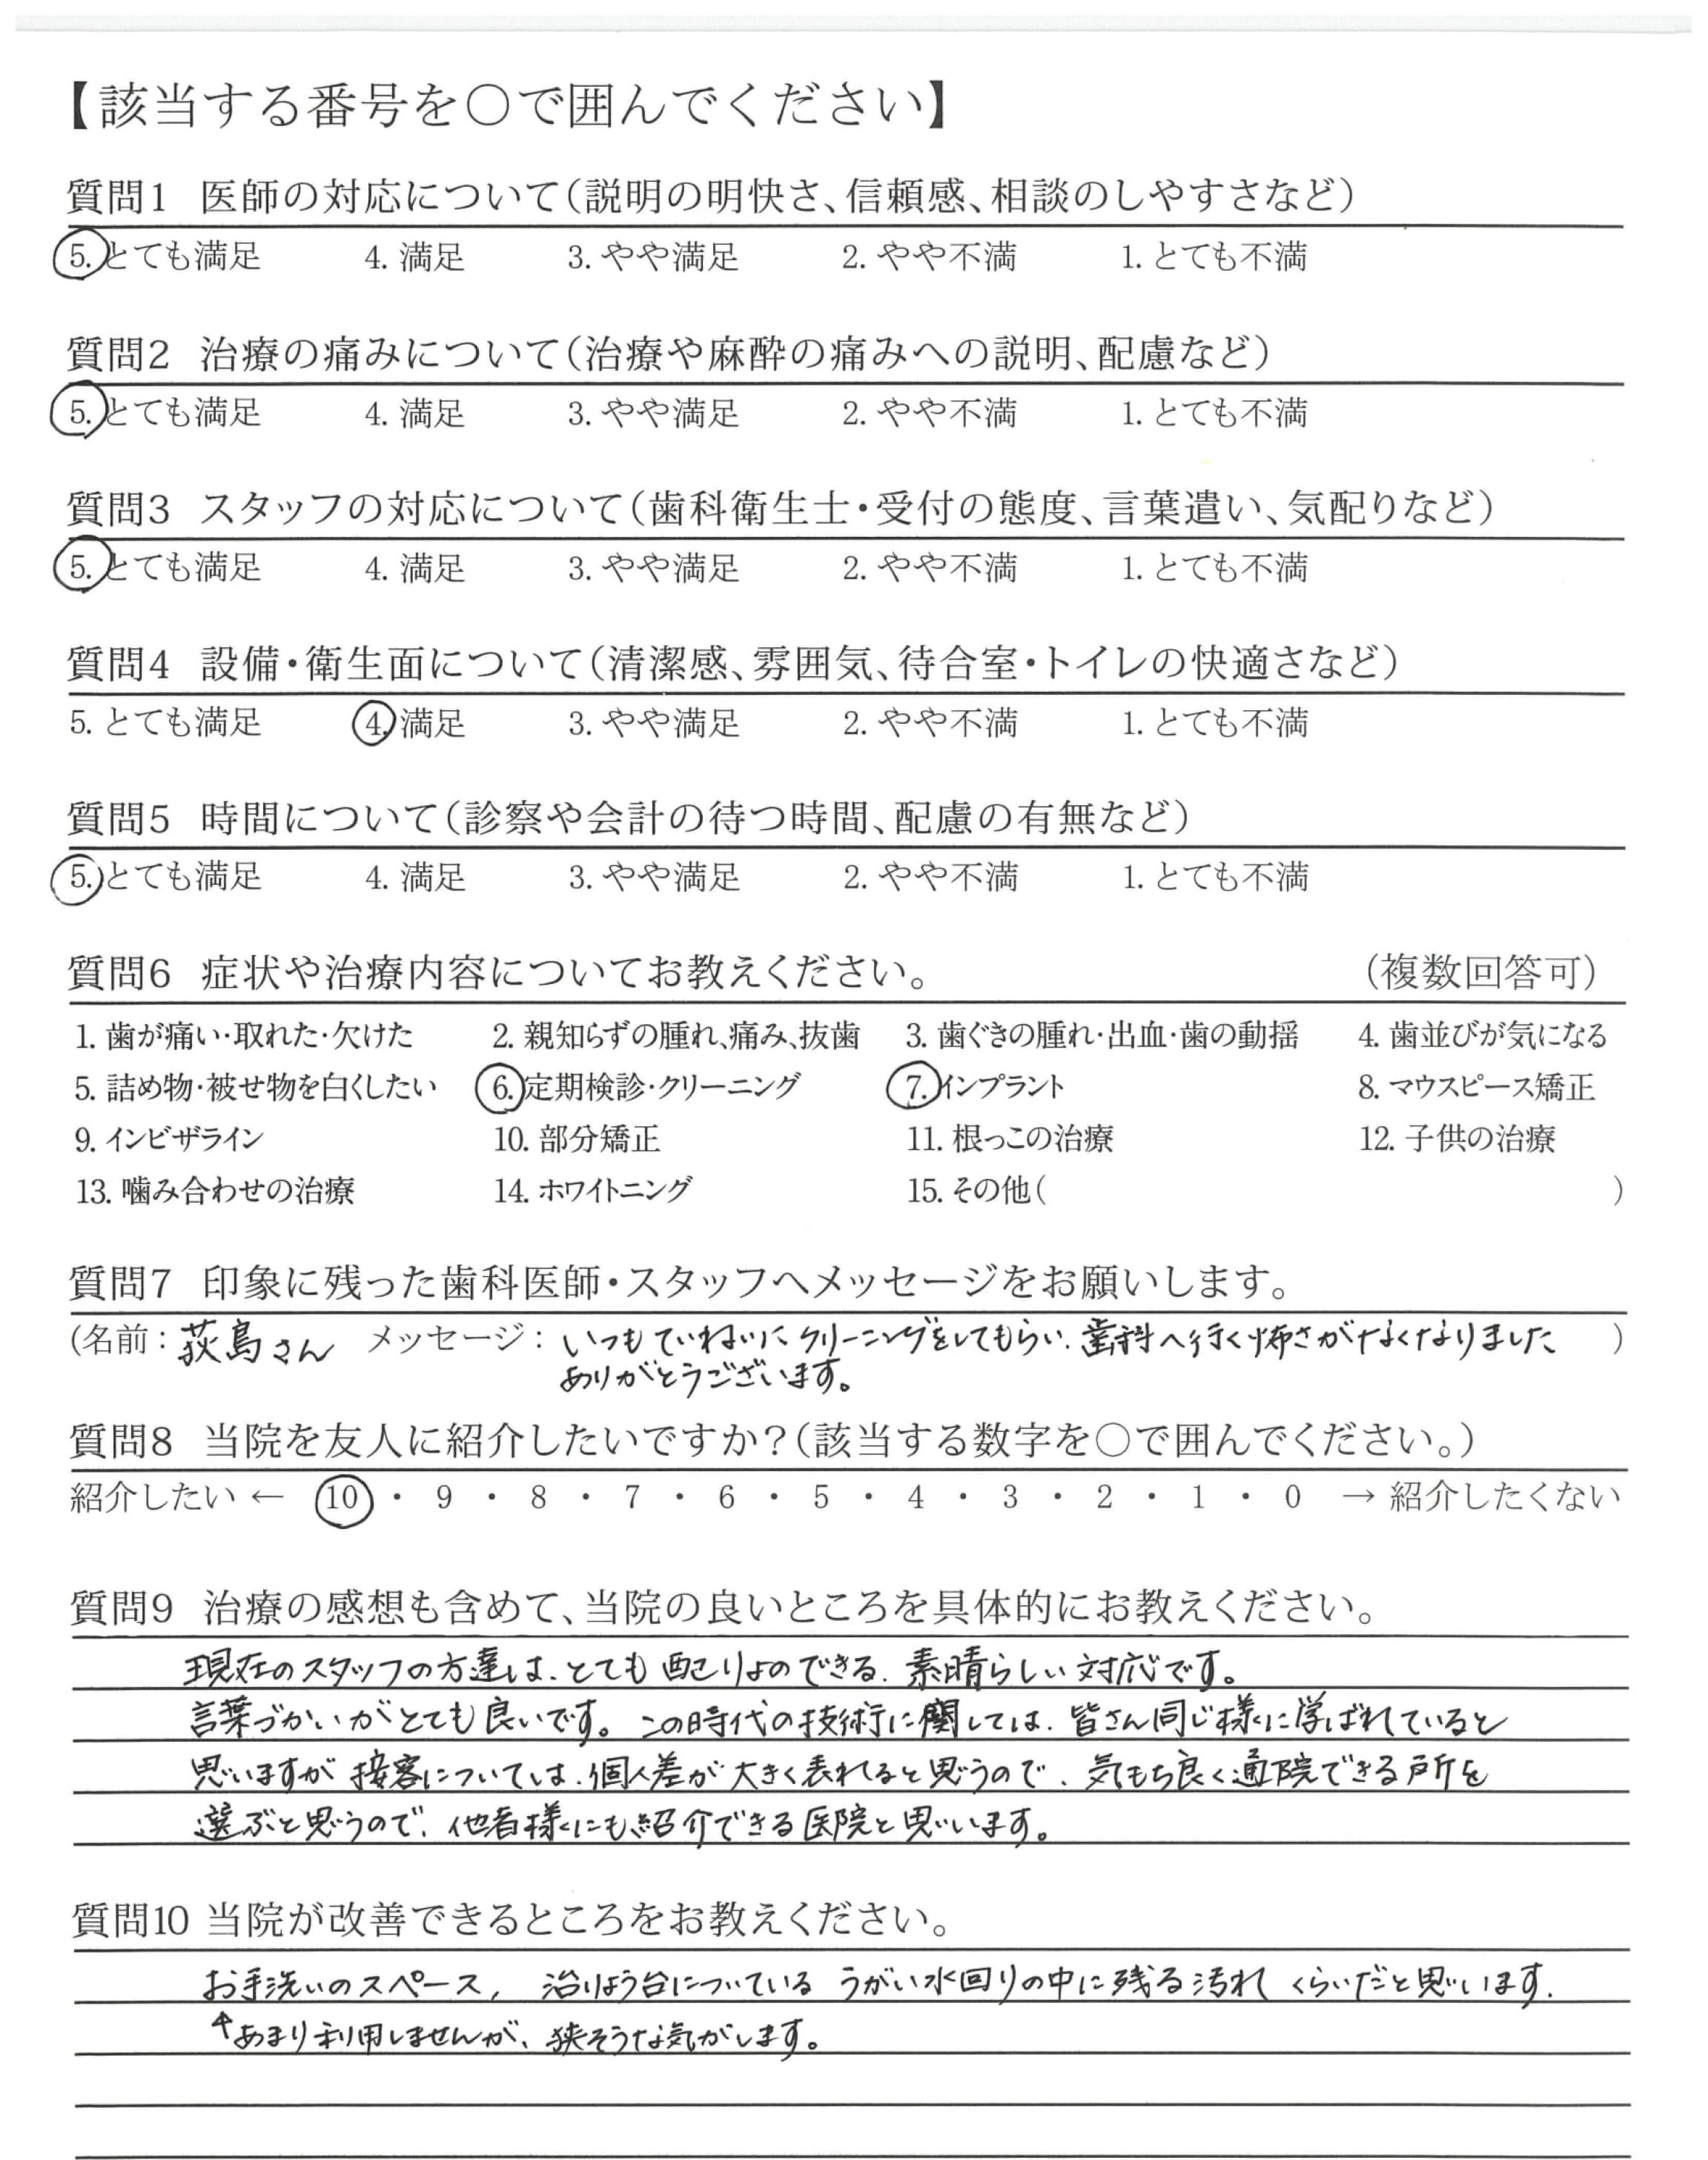 【該当する番号を○で囲んでください】
質問1 医師の対応について(説明の明快さ、信頼感、相談のしやすさなど)
5. とても満足 4. 満足 3. やや満足 2. やや不満 1. とても不満
質問2 治療の痛みについて(治療や麻酔の痛みへの説明、配慮など)
5. とても満足 4. 満足 3. やや満足 2. やや不満 1. とても不満
質問3 スタッフの対応について(歯科衛生士・受付の態度、言葉遣い、気配りなど)
5. とても満足 4. 満足 3. やや満足 2. やや不満 1. とても不満
質問4 設備・衛生面について(清潔感、雰囲気、待合室・トイレの快適さなど)
5. とても満足 4. 満足 3. やや満足 2. やや不満 1. とても不満
質問5 時間について(診察や会計の待つ時間、配慮の有無など)
5. とても満足 4. 満足 3. やや満足 2. やや不満 1. とても不満
質問6 症状や治療内容についてお教えください。 (複数回答可)
1. 歯が痛い・取れた・欠けた 2. 親知らずの腫れ、痛み、抜歯 3. 歯ぐきの腫れ・出血・歯の動揺 4. 歯並びが気になる
5. 詰め物・被せ物を白くしたい 6. 定期検診・クリーニング 7. インプラント 8. マウスピース矯正
9. インビザライン 10. 部分矯正 11. 根っこの治療 12. 子供の治療
13. 噛み合わせの治療 14. ホワイトニング 15. その他( )
質問7 印象に残った歯科医師・スタッフへメッセージをお願いします。
(名前: 荻島さん メッセージ: いつもていねいにクリーニングをしてもらい、歯科へ行く怖さがなくなりました )
ありがとうございます。
質問8 当院を友人に紹介したいですか?(該当する数字を○で囲んでください。)
紹介したい ← 10 ・ 9 ・ 8 ・ 7 ・ 6 ・ 5 ・ 4 ・ 3 ・ 2 ・ 1 ・ 0 → 紹介したくない
質問9 治療の感想も含めて、当院の良いところを具体的にお教えください。
現在のスタッフの方達は、とても配りょのできる、素晴らしい対応です。
言葉づかいがとても良いです。この時代の技術に関しては、皆さん同じ様に学ばれていると
思いますが接客については、個人差が大きく表れると思うので、気もち良く通院できる所を
選ぶと思うので、他者様にも紹介できる医院と思います。
質問10 当院が改善できるところをお教えください。
お手洗いのスペース, 治りょう台についているうがい水回りの中に残る汚れくらいだと思います.
↑あまり利用しませんが、狭そうな気がします。